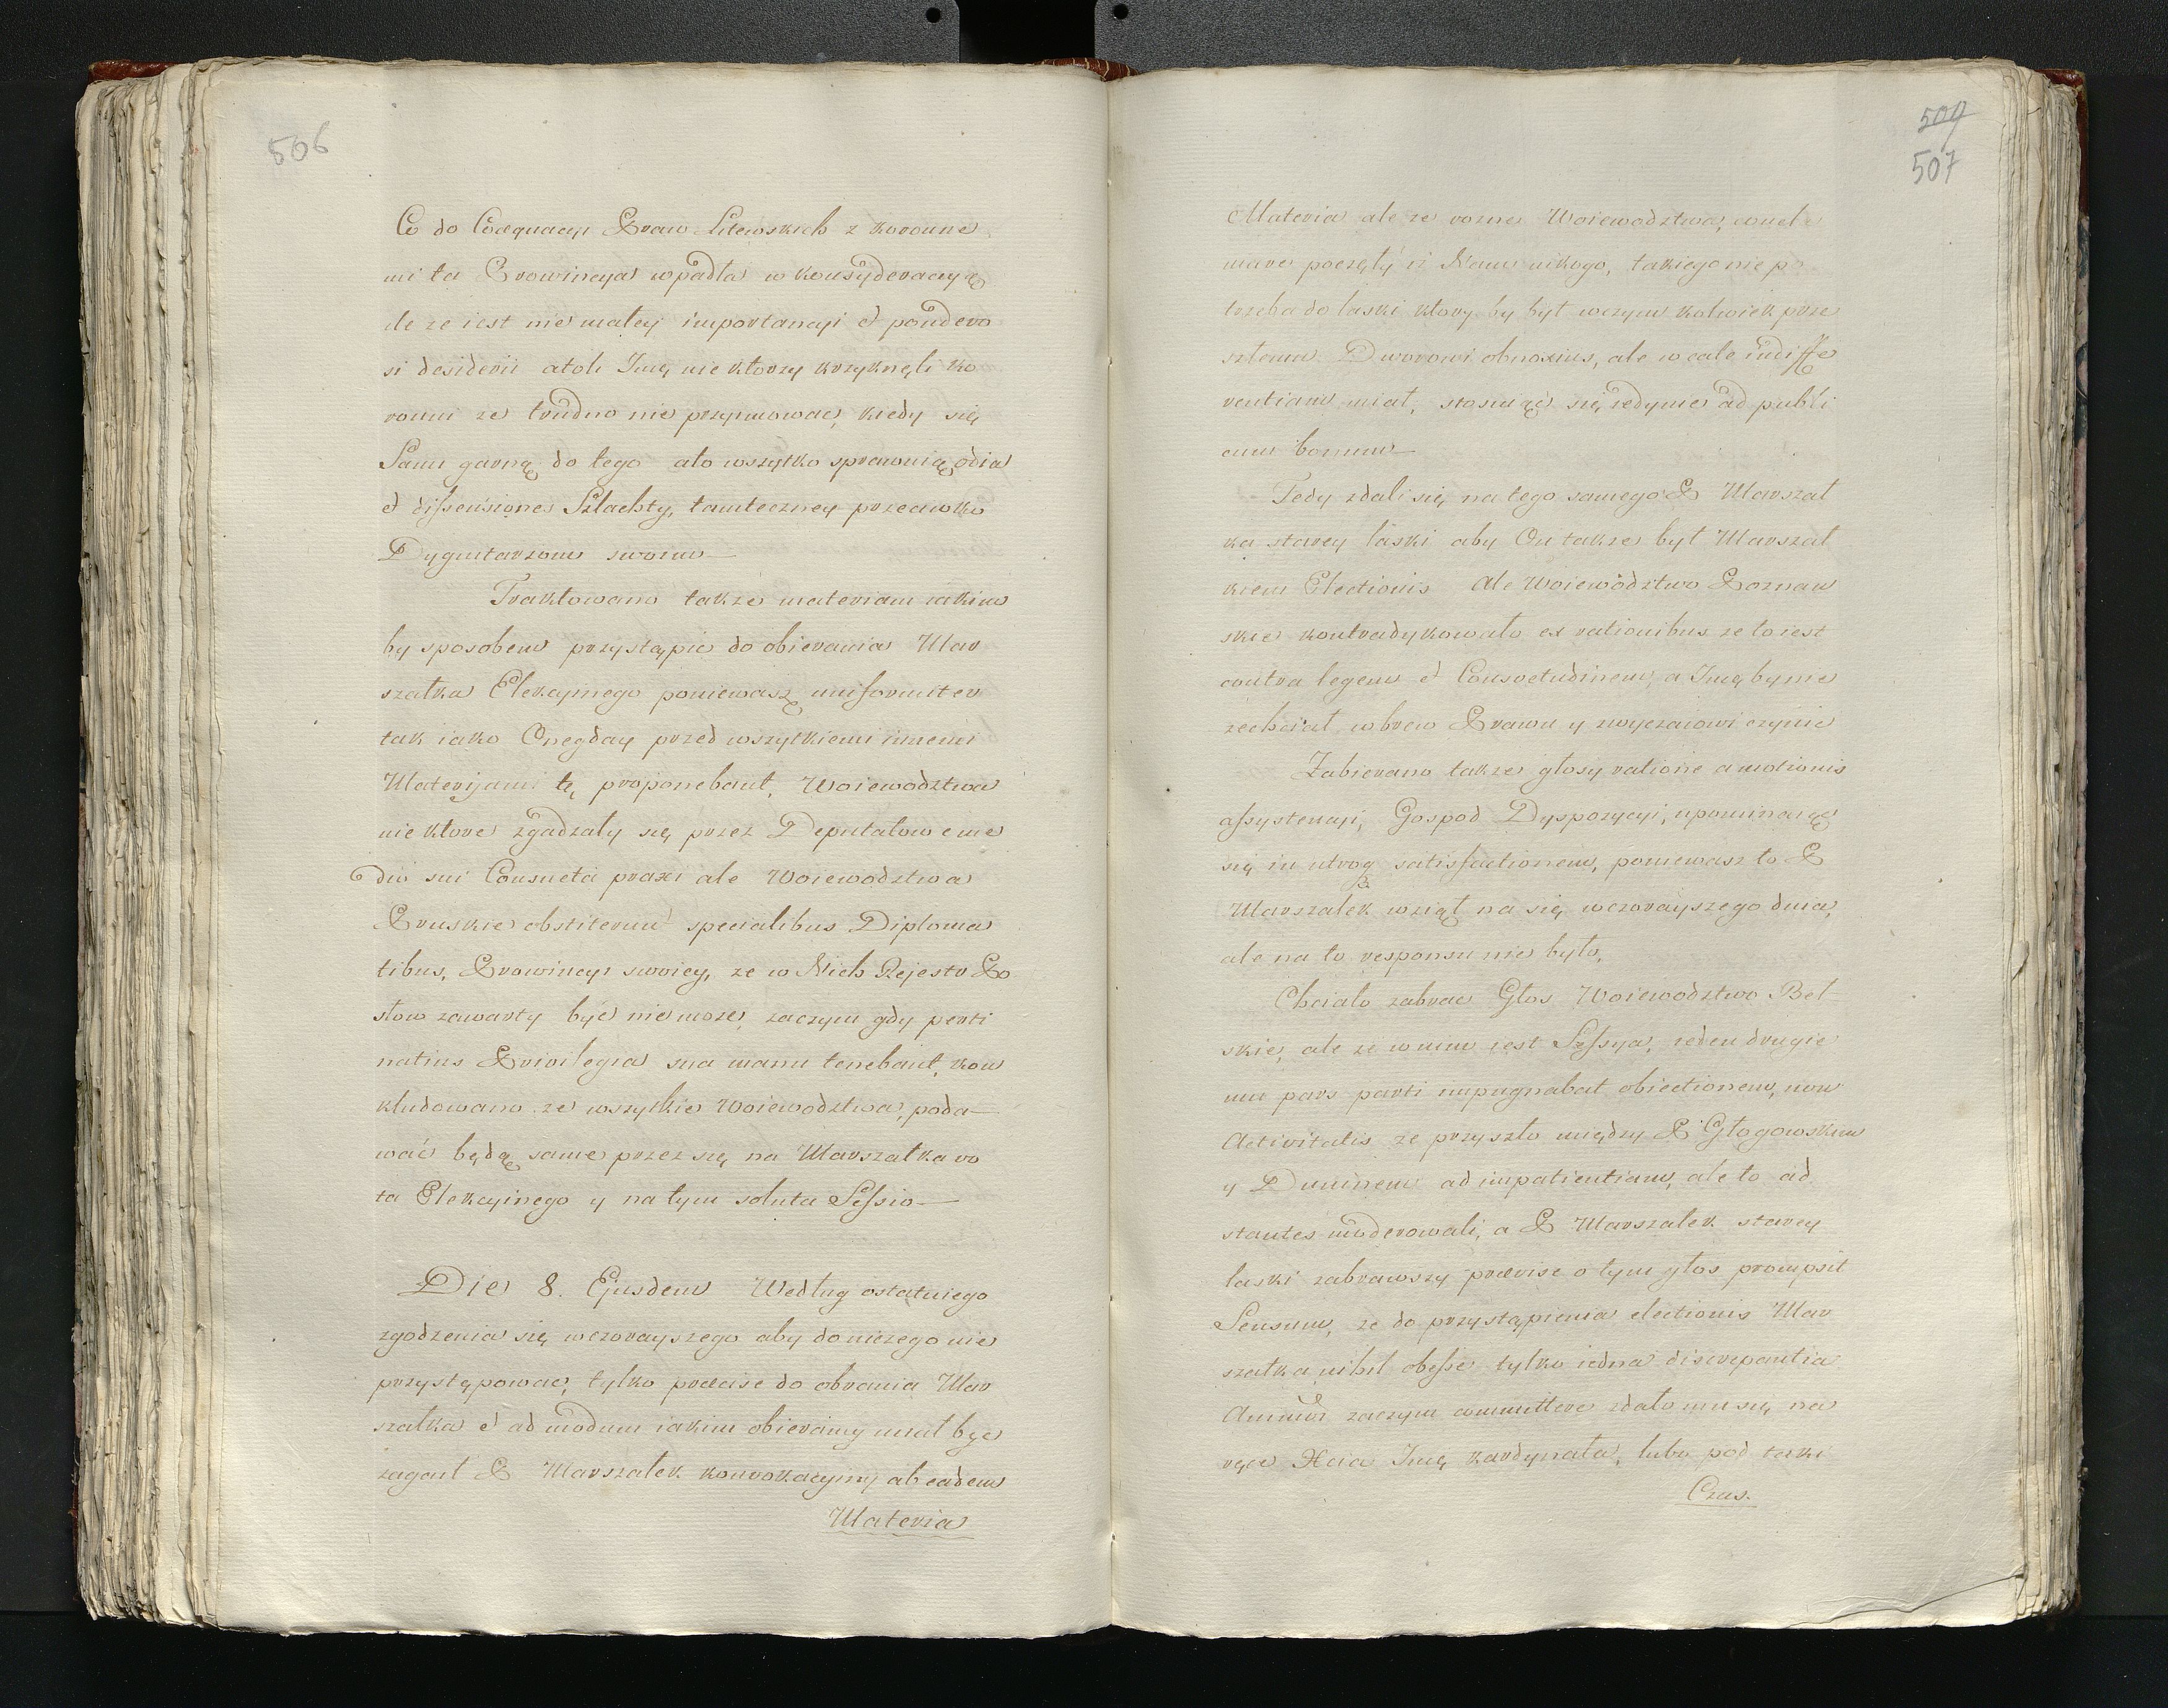 506
Co do Coæquacyi Praw Litewskich z koronne
mi ta Prowincya wpadła w konsyderacyią
ile ze iest nie małey importancyi et pondero
si desiderii atoli Imę nie ktorzy krzyknęli ko
ronni ze trudno nie przyimowac, kiedy się
Sami garną do tego ato wszytko sprawuią odia
et dissensiones Szlachty, tamteczney przeciwko
Dygnitarzom swoim
Traktowano także materiam iakim
by sposobem przystąpic do obierania Mar
szałka Elekcyinego poniewasz uniformiter
tak iako Onegday przed wszytkiemi innemi
Materyjami tę proponebant, Woiewodztwa
nie ktore zgadzały się przez Deputatow e me
dio sui Consueta praxi ale Woiewodztwa
Pruskie obstiterunt specialibus Diploma
tibus, Prowincyi swoiey, ze w Nich Rejestr Po
słow zawarty być nie może, zaczym gdy perti
natius Privilegia sua manu tenebant, kon
kludowano ze wszytkie Woiewodztwa, poda
wać będą same przez się na Marszałka vo
ta Elekcyinego y na tym soluta Sessio
Die 8. Ejusdem Według ostatniego
zgodzenia się wczorayszego aby do niczego nie
przystępowac, tylko præcise do obrania Mar
szałka et ad modum iakim obierany miał byc
zagaił P Marszałek konwokacyiny ab eadem
Materia
509
507
Materia ale ze rozne Woiewodztwa,
poczęły iż Nam nikogo, takiego nie po
trzeba do laski ktory by był wczym kolwiek prze
szłemu Dworowi obnoxius, ale w cale indiffe
rentiam miał, stosuiąc się iedynie ad publi
cum bonum
Tedy zdali się na tego samego P Marszał
ka starey laski aby On takze był Marszał
kiem Electionis Ale Woiewodztwo Poznan
skie kontradykowało ex rationibus ze to iest
contra legem et Consvetudinem, a Imę by nie
zechciał wbrew Prawu y zwyczaiowi czynic
Zabierano takze głosy ratione amotionis
assystencyi, Gospod Dyspozycyi, upominaiąc
się in utroq satisfactionem, poniewasz to P
Marszałek wziął na się wczorayszego dnia,
ale na to responsu nie było,
Chciało zabrac Głos Woiewodztwo Beł
skie, ale ze w nim iest Scissya, ieden drugie
mu pars parti impugnabat obiectionem, non
Activitatis ze przyszło między P Głogowskim
y Duninem ad impatientiam, ale to ad
stantes moderowali, a P Marszałek starey
laski zabrawszy præcise o tym głos prompsit
Sensum, ze do przystąpienia electionis Mar
szałka nihil obesse tylko iedna discrepantia
zaczym committere zdało mu się na
ręce Xcia Imę kardynała, lubo pod teski
Czas.